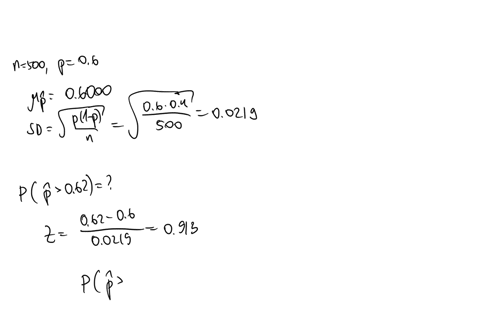 n=500, p=0.6
μp̂= 0.6000
SD= √(p(1-p)/n) = √(0.6·0.4/500) = 0.0219
P(p̂>0.62)=?
Z= (0.62-0.6)/0.0219 = 0.913
P(p̂>